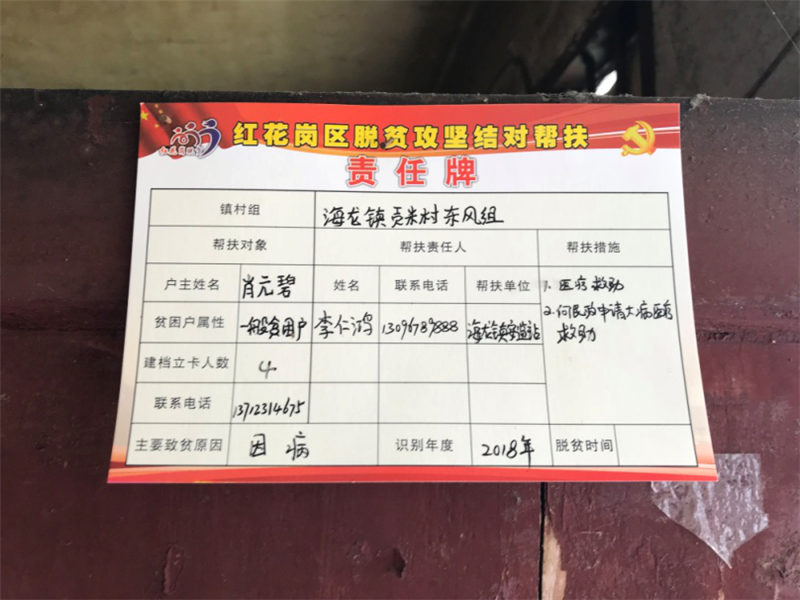 红花岗区脱贫攻坚结对帮扶
责任牌
镇村组 海龙镇贡米村东风组
帮扶对象 帮扶责任人 帮扶措施
户主姓名 肖元碧 姓名 联系电话 帮扶单位 1. 医疗救助
贫困户属性 一般贫困户 李仁鸿 13096789888 海龙镇安监站 2. 向民政申请大病医疗
救助
建档立卡人数 4
联系电话 13712314675
主要致贫原因 因病 识别年度 2018年 脱贫时间